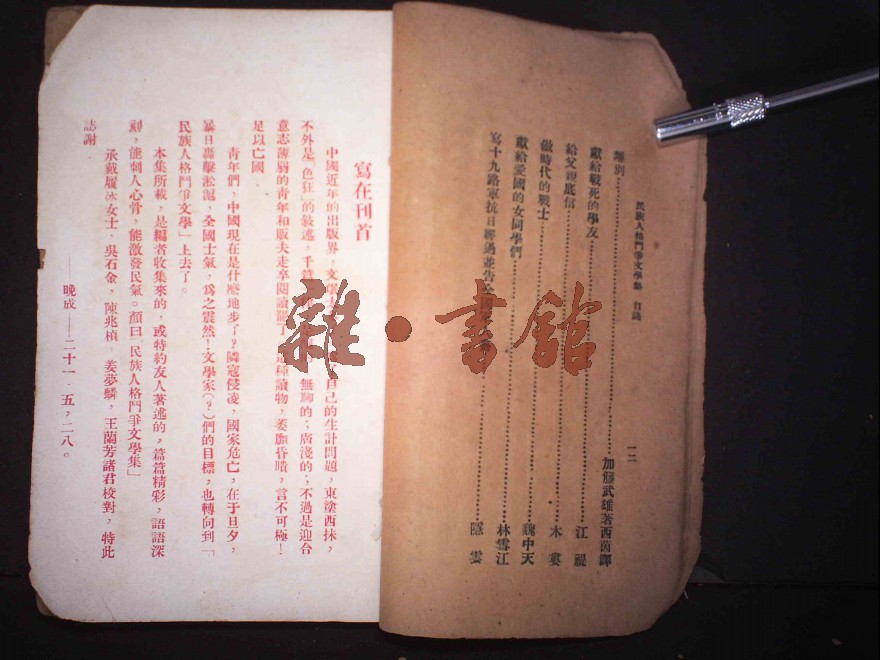 民族人格鬥爭文學集　目錄
一二
離別……加藤武雄著西茵譯
獻給戰死的學友……江禔
給父親底信……木婁
做時代的戰士……魏中天
獻給愛國的女同學們……林雪江
寫十九路軍抗日經過並告全國……隱雲
寫在刊首
中國近年的出版界，文學……自己的生計問題，東塗西抹，
不外是「色狂」的敍述，千篇……無聊的；膚淺的；不過是迎合
意志薄弱的青年和販夫走卒閱讀罷了……種讀物，萎靡昏瞶，言不可極！
足以亡國。
青年們，中國現在是什麼地步了？隣寇侵凌，國家危亡，在于旦夕，
暴日轟擊淞滬，全國士氣，爲之震然！文學家（？）們的目標，也轉向到「
民族人格鬥爭文學」上去了。
本集所載，是編者收集來的，或特約友人著述的，篇篇精彩，語語深
刻，能刺人心骨，能激發民氣。顏曰「民族人格鬥爭文學集」
承戴履冰女士，吳石金，陳兆楨，姜夢麟，王蘭芳諸君校對，特此
誌謝．
——晚成——二十一，五，二八。
雜·書館